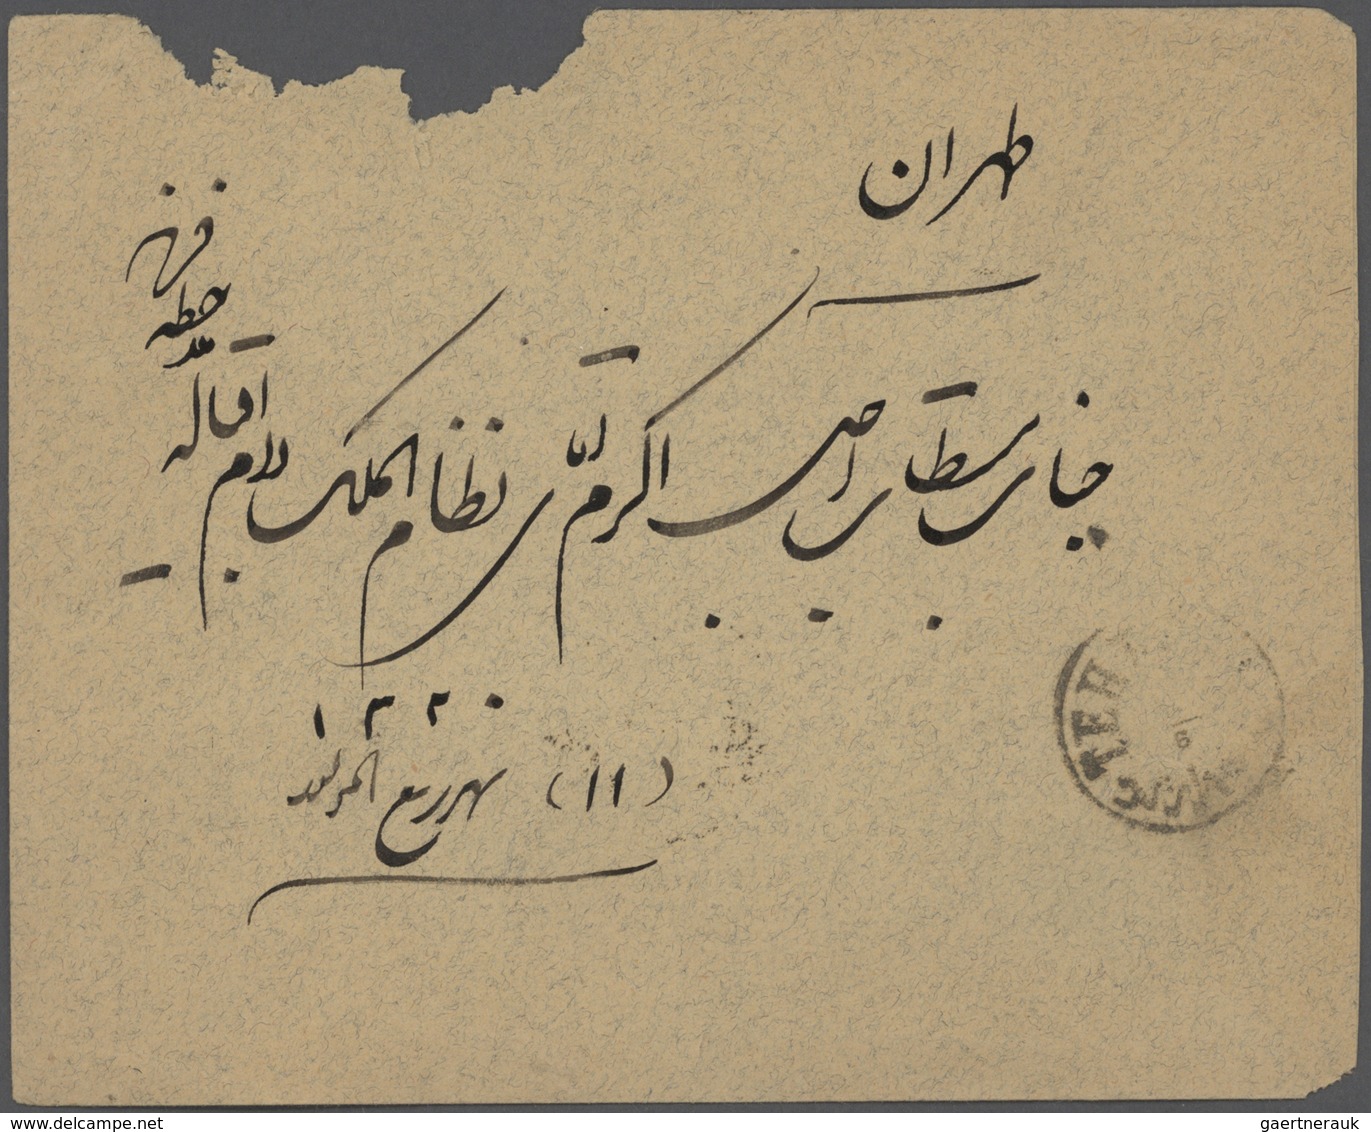 طهران
جناب مستطاب اجل اکرم آقای نظام الملک دام اقباله
۱۳۲۰
(۱۱) شهر ربیع المولود
TEH
gaertnerauk
delcampe.net